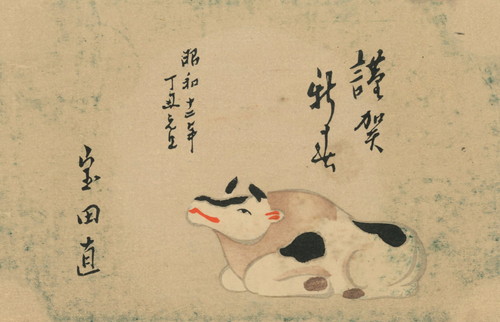 謹賀
新春
昭和十二年
丁丑元旦
宝田直